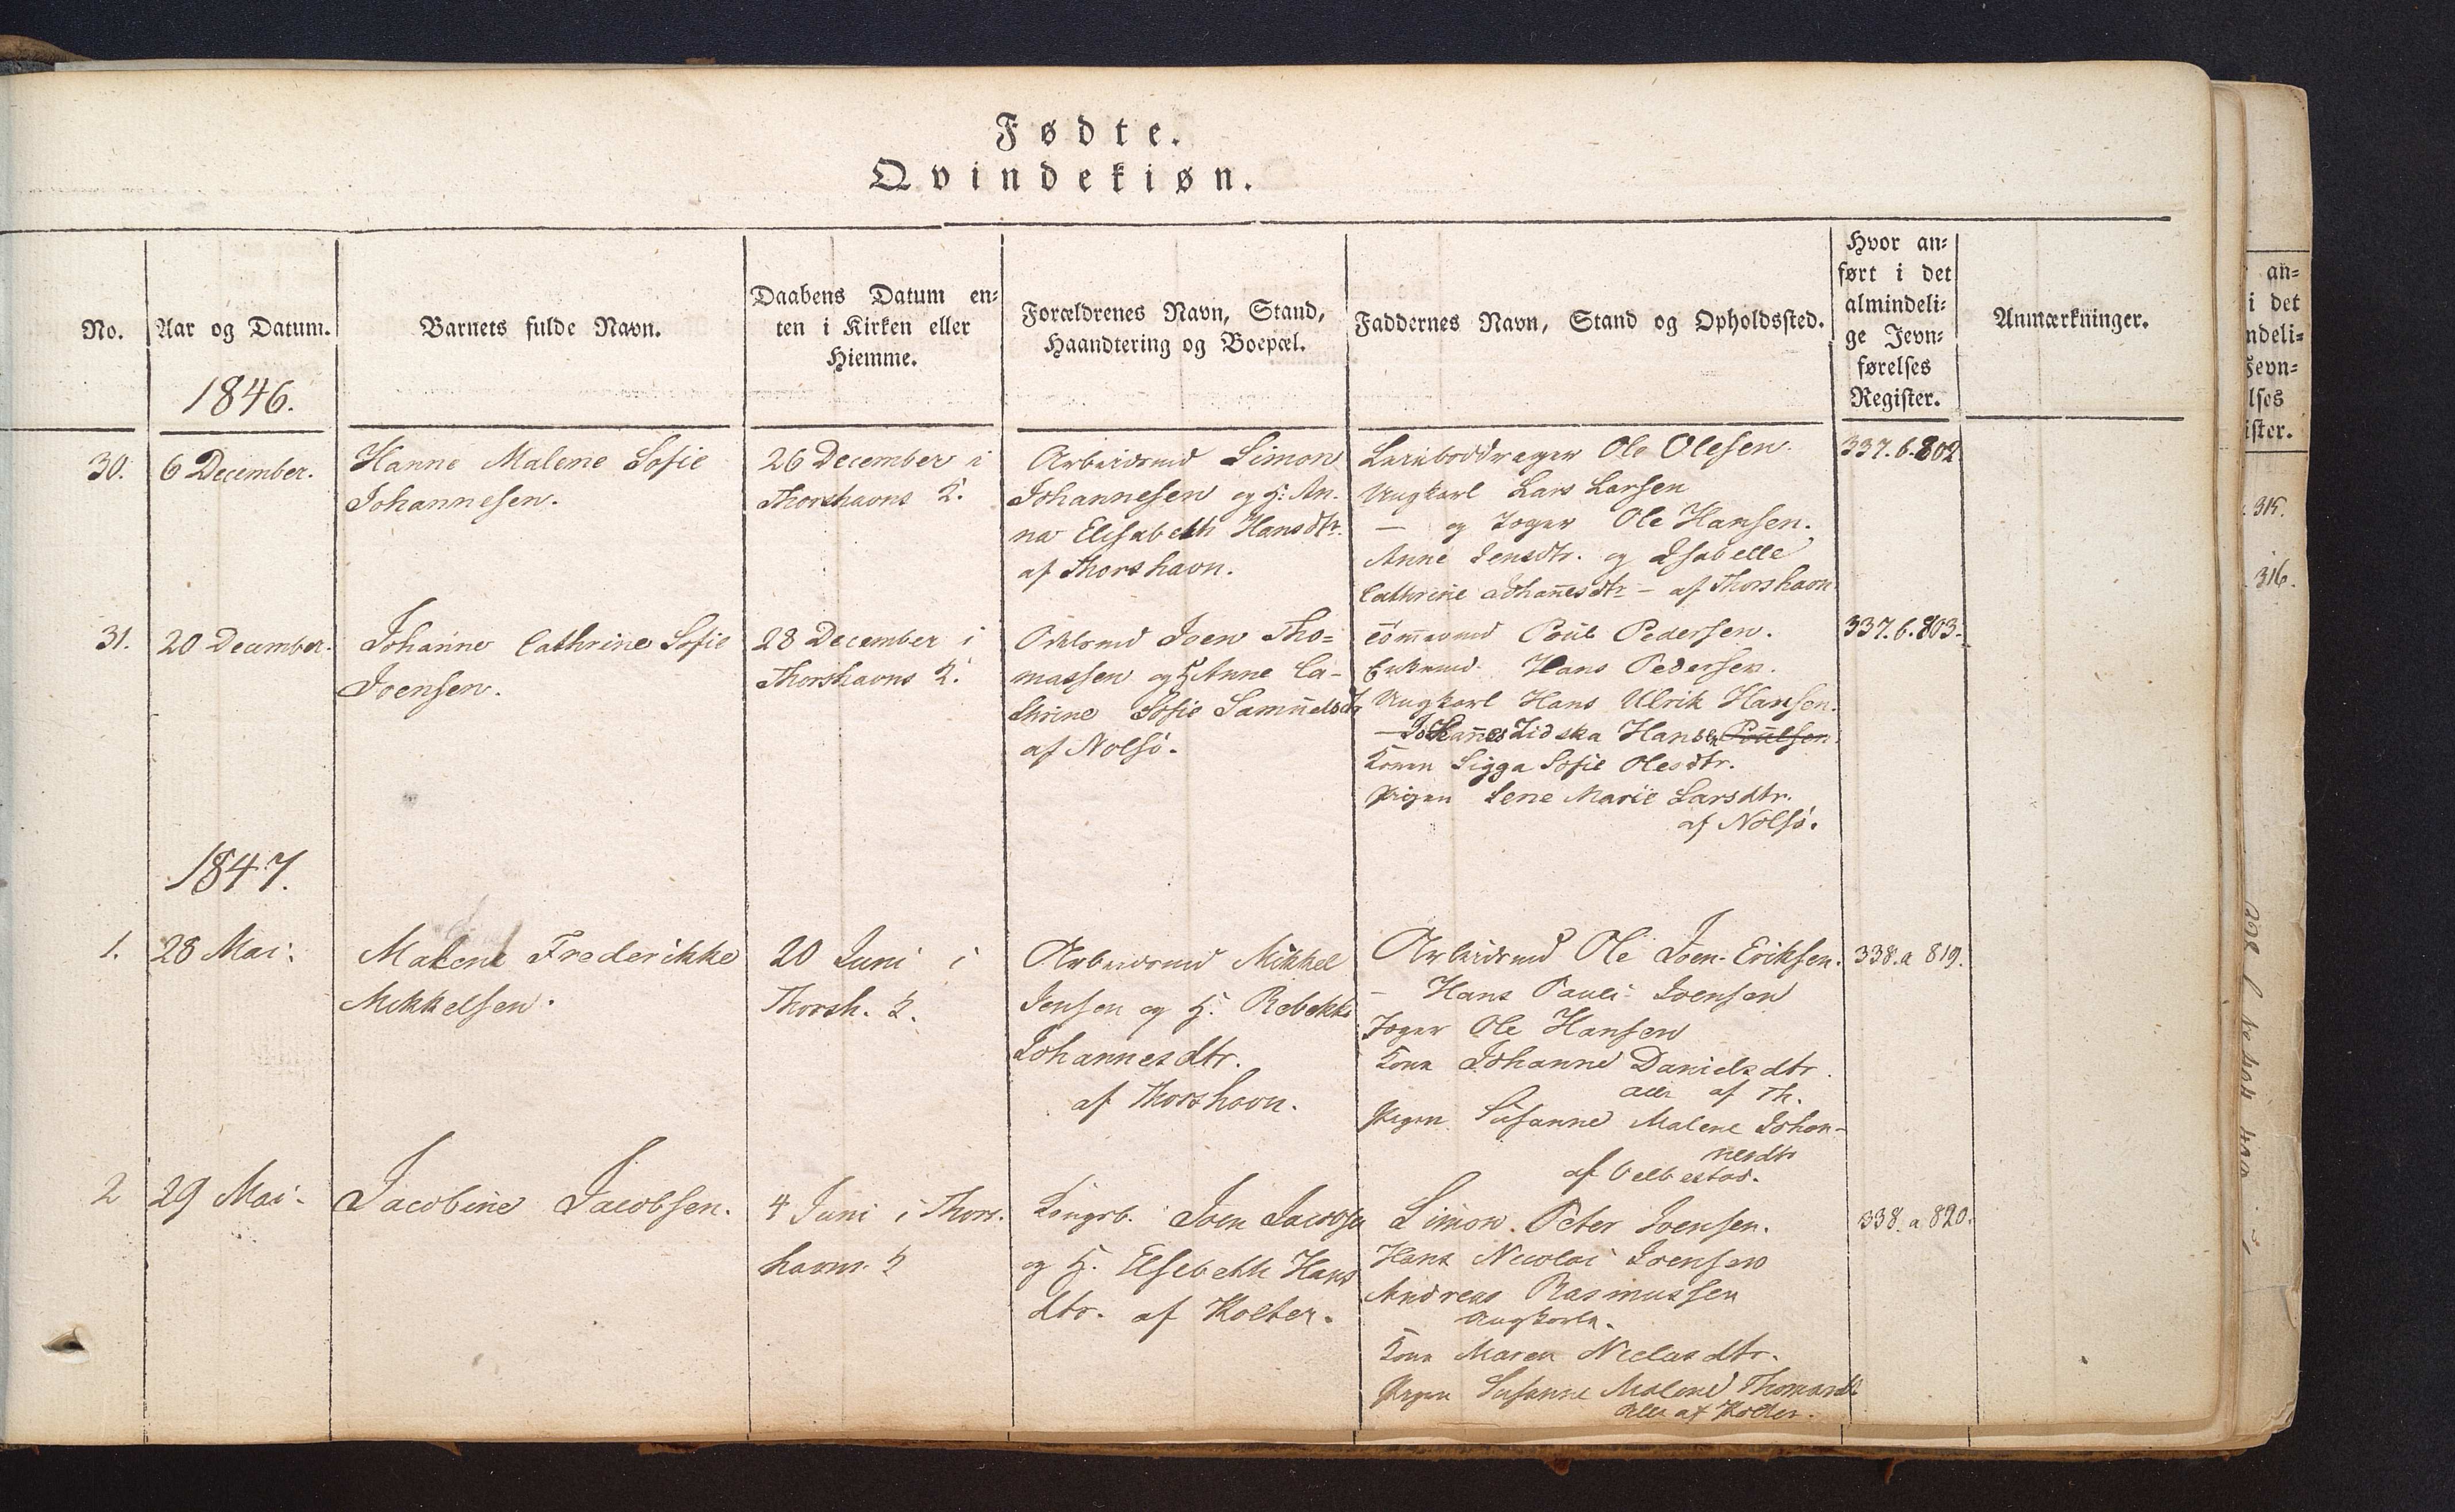 Fødte.
Qvindekiøn.
No.
Aar og Datum.
Barnets fulde Navn.
Daabens Datum en-
ten i Kirken eller
Hiemme.
Forældrenes Navn, Stand,
Haandtering og Boepæl.
Faddernes Navn, Stand og Opholdssted.
Hvor an-
ført i det
almindeli-
ge Jevn-
førelses
Register.
Anmærkninger.
1846.
30.
6 December.
Hanne Malene Sofie
Johannesen.
26 December i
Thorshavns K.
Arbeidsmd Simon
Johannesen og H: An-
na Elisabeth Hansdtr.
af Thorshavn.
Ole Olesen.
Ungkarl Lars Larsen
— og Ole Hansen.
Anne Jensdtr. og Isabelle
Cathrine Johannesdtr — af Thorshavn
337.b.802
31.
20 December.
Johanne Cathrine Sofie
Joensen.
28 December i
Thorshavns K.
Joen Tho-
massen og H Anne Ca-
thrine Sofie Samuelsdtr
af Nolsö.
Poul Pedersen.
Hans Pedersen.
Ungkarl Hans Ulrik Hansen.
— Johannes Hansen Poulsen
Konen Sigga Sofie Olesdtr.
Pigen Lene Marie Larsdtr.
af Nolsö.
337.b.803.
1847.
1.
28 Mai.
Malene Frederikke
Mikkelsen.
20 Juni i
Thorsh. K.
Arbeidsmd Mikkel
Jensen og H. Rebekka
Johannesdtr.
af Thorshavn.
Arbeidsmd Ole Joen Eriksen.
— Hans Pauli Joensen
Ole Hansen
Kone Johanne Danielsdtr.
alle af Th.
Pigen Susanne Malene Johan-
nesdtr
af Velbestad.
338.a 819.
2
29 Mai.
Jacobine Jacobsen.
4 Juni i Thors-
havns K
Kongsb. Joen Jacobsen
og H. Elsebeth Hans
dtr. af Kolter.
Simon Peter Joensen.
Hans Nicolai Joensen
Andreas Rasmussen
Ungkarle.
Kone Maren Niclasdtr.
Pigen Susanne Malene Thomasdtr
Alle af Kolter.
338.a 820.
an-
i det
ndeli-
Jevn-
lses
ister.
315.
316.